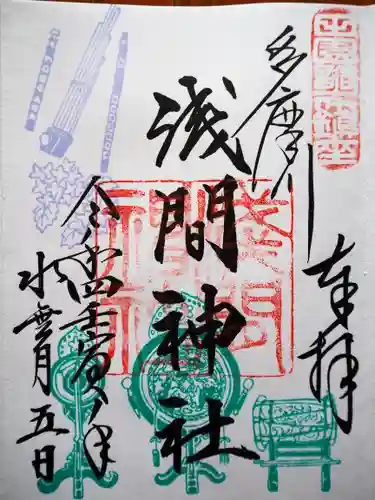 奉拝
多摩川
浅間神社
令和四壬寅年
水無月五日